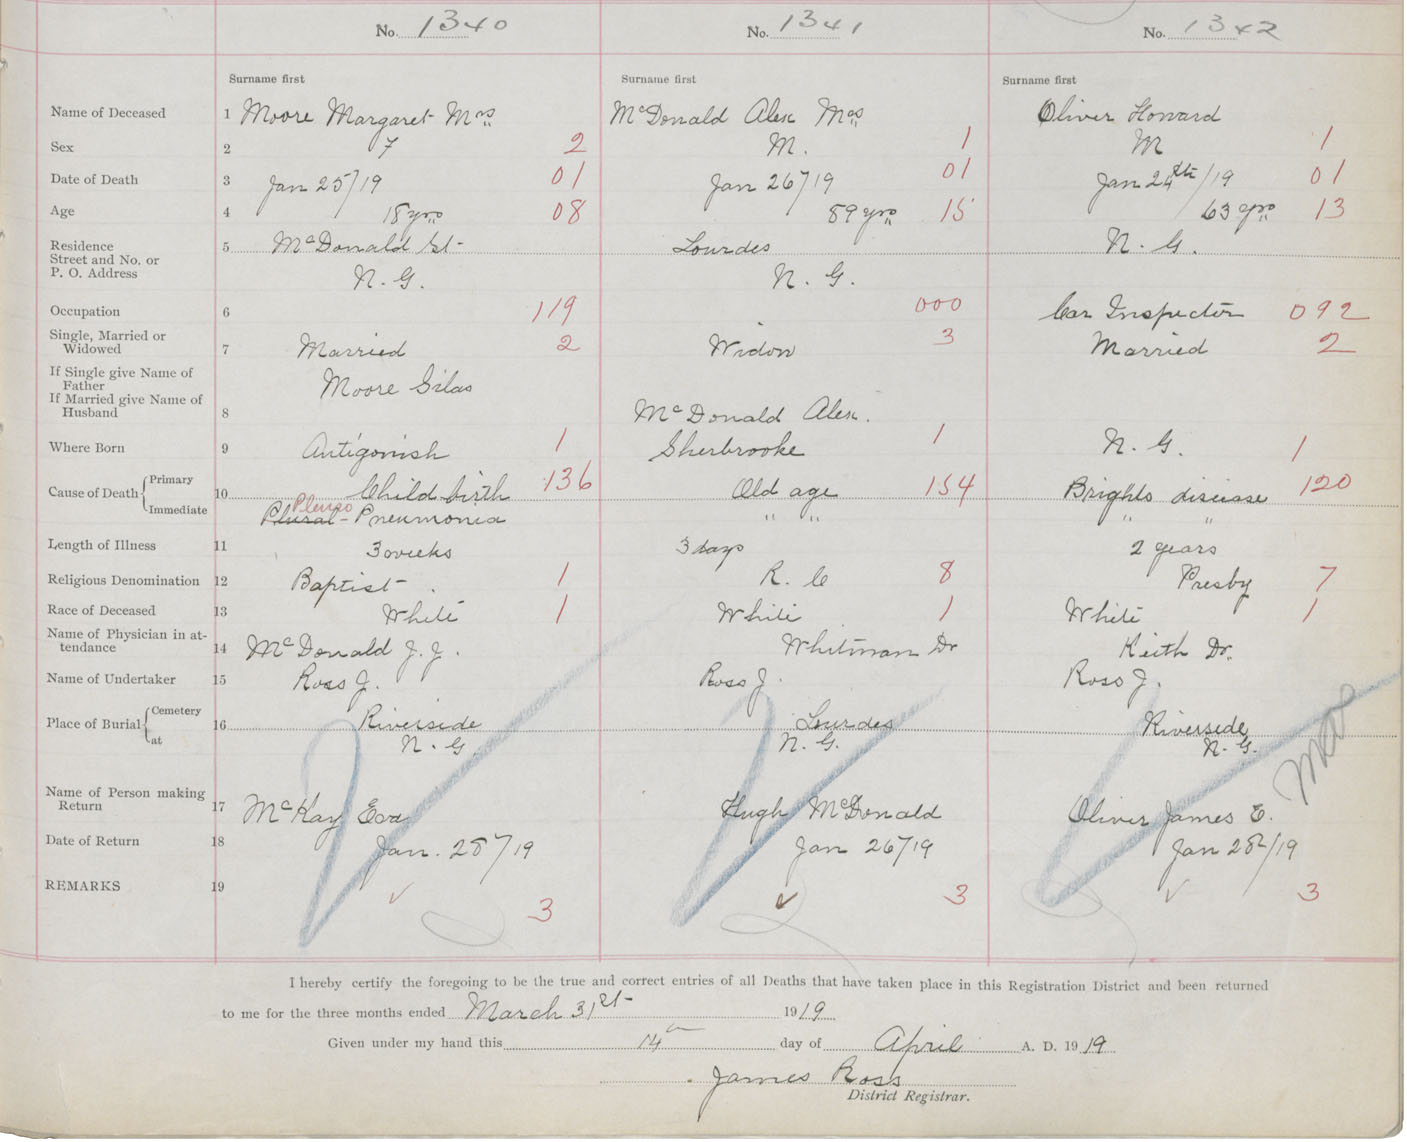 No. 1340 No. 1341 No. 1342
Surname first Surname first Surname first
Name of Deceased 1 Moore Margaret Mrs McDonald Alex Mrs Oliver Howard
Sex 2 F 2 M. 1 M 1
Date of Death 3 Jan 25/19 01 Jan 26/19 01 Jan 24th/19 01
Age 4 18 yrs 08 89 yrs 15 63 yrs 13
Residence 5 McDonald St Lourdes N. G.
Street and No. or
P. O. Address N. G. N. G.
Occupation 6 119 000 Car Inspector 092
Single, Married or
Widowed 7 Married 2 Widow 3 Married 2
If Single give Name of
Father Moore Silas
If Married give Name of
Husband 8 McDonald Alex.
Where Born 9 Antigonish 1 Sherbrooke 1 N. G. 1
Cause of Death { Primary 10 Child birth 136 Old age 154 Brights disease 120
Immediate Plural Pleuro - Pneumonia " " " "
Length of Illness 11 3 weeks 3 days 2 years
Religious Denomination 12 Baptist 1 R. C 8 Presby 7
Race of Deceased 13 White 1 White 1 White 1
Name of Physician in at-
tendance 14 McDonald J. J. Whitman Dr Keith Dr.
Name of Undertaker 15 Ross J. Ross J. Ross J.
Place of Burial { Cemetery 16 Riverside Lourdes Riverside
at N. G. N. G. N. G.
Name of Person making
Return 17 McKay Eva Hugh McDonald Oliver James E.
Date of Return 18 Jan. 28/19 Jan 26/19 Jan 28/19
REMARKS 19 ✓ 3 ✓ 3 ✓ 3
I hereby certify the foregoing to be the true and correct entries of all Deaths that have taken place in this Registration District and been returned
to me for the three months ended March 31st 1919
Given under my hand this 14th day of April A. D. 1919
James Ross
District Registrar.